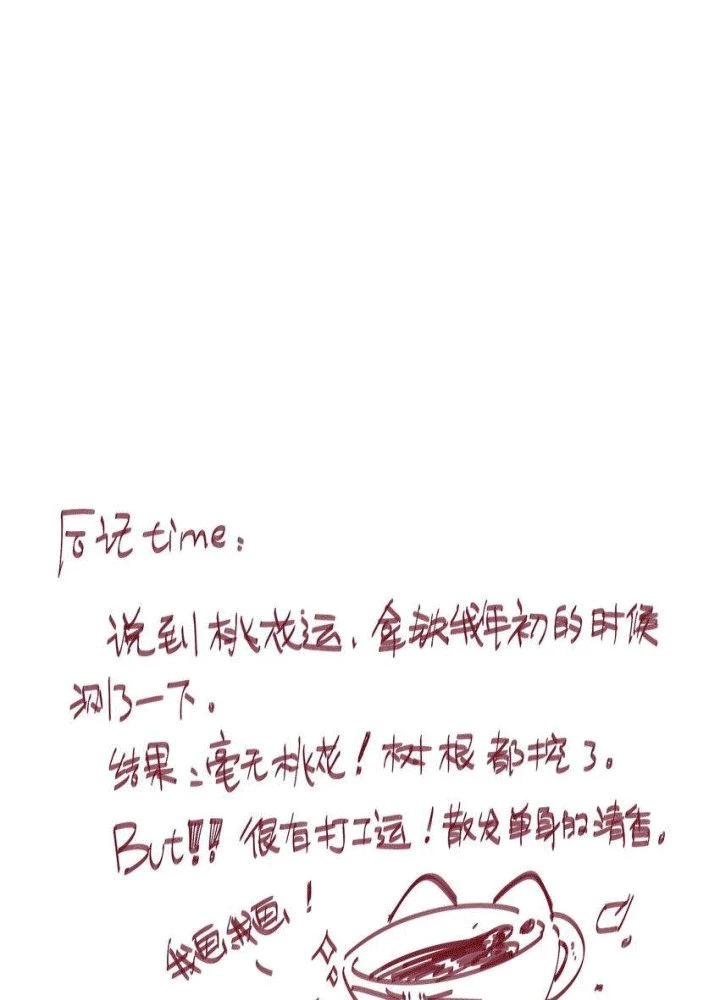 后记time：
说到桃花运、拿铁我年初的时候
测了一下。
结果：毫无桃花！树根都挖了。
But!!! 很有打工运！散发单身的清香。
我画我画、！